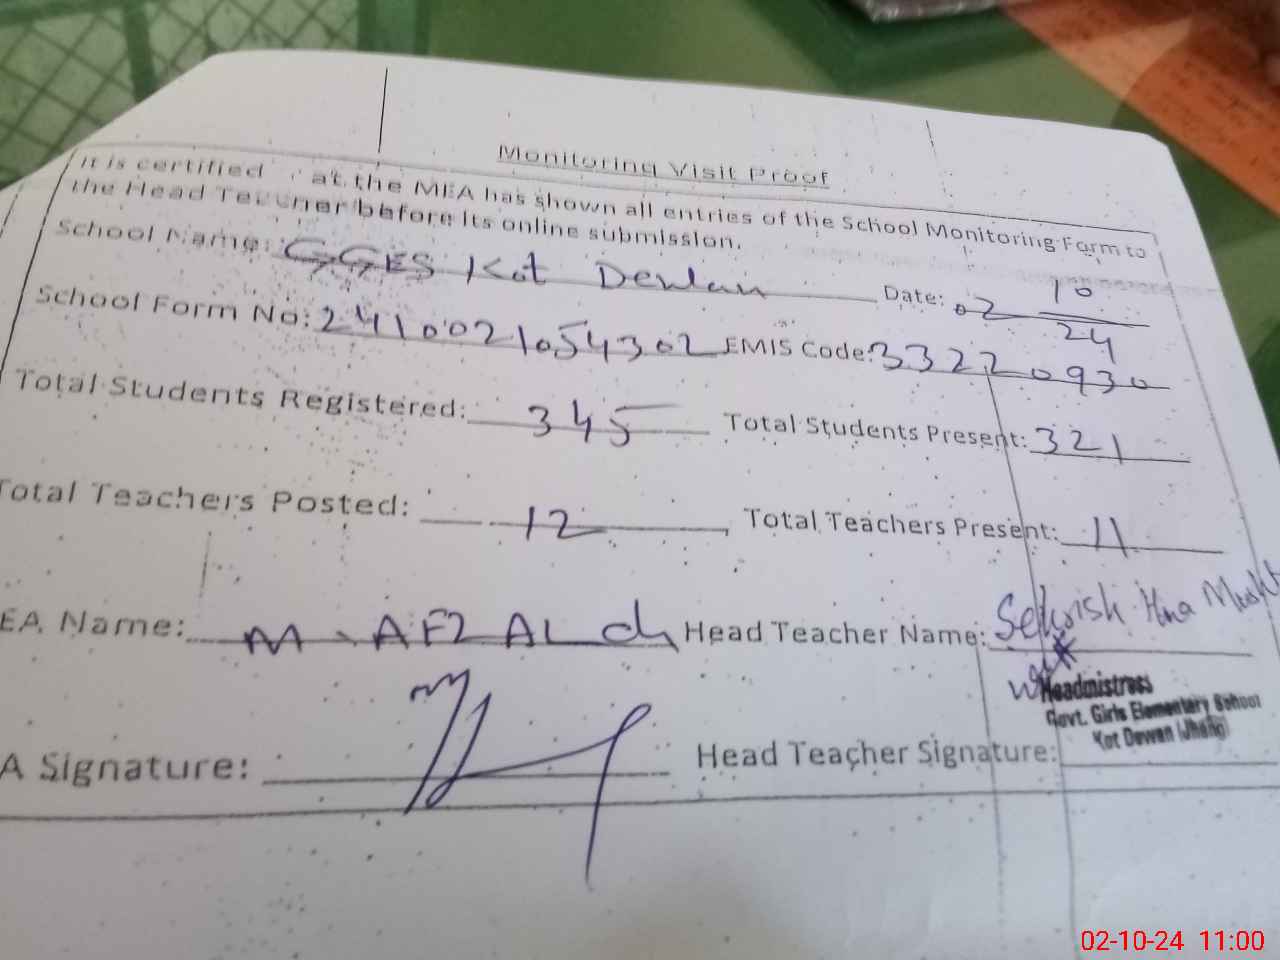 Monitoring Visit Proof
It is certified at the MEA has shown all entries of the School Monitoring Form to
the Head Teacher before its online submission.
School Name: GGES Kot Dewan Date: 02 10 24
School Form No: 2410021054302 EMIS Code: 33220930
Total Students Registered: 345 Total Students Present: 321
Total Teachers Posted: 12 Total Teachers Present: 11
EA Name: M. AFZAL ch Head Teacher Name: Sehrish
Headmistress
Govt. Girls Elementary School
Kot Dewan (Jhang)
A Signature: Head Teacher Signature:
02-10-24 11:00